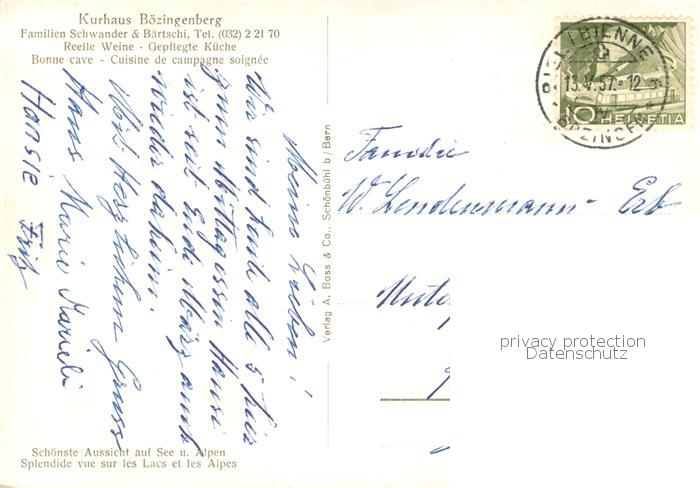 Kurhaus Bözingenberg
Familien Schwander & Bärtschi, Tel. (032) 2 21 70
Reelle Weine - Gepflegte Küche
Bonne cave - Cuisine de campagne soignée
Meine Lieben!
Wir sind heute alle 5 hier
zum Mittagessen Hansi
ist seit Ende März
wieder daheim.
Mit herzlichem Gruss
Hans Marie Marieli
Hansie Fritz
Schönste Aussicht auf See u. Alpen
Splendide vue sur les Lacs et les Alpes
Verlag A. Boss & Co., Schönbühl b/Bern
BIEL/BIENNE
13.V.57.-12
BÖZINGEN
10 HELVETIA
Familie
W. Lendenmann - Erb
privacy protection
Datenschutz